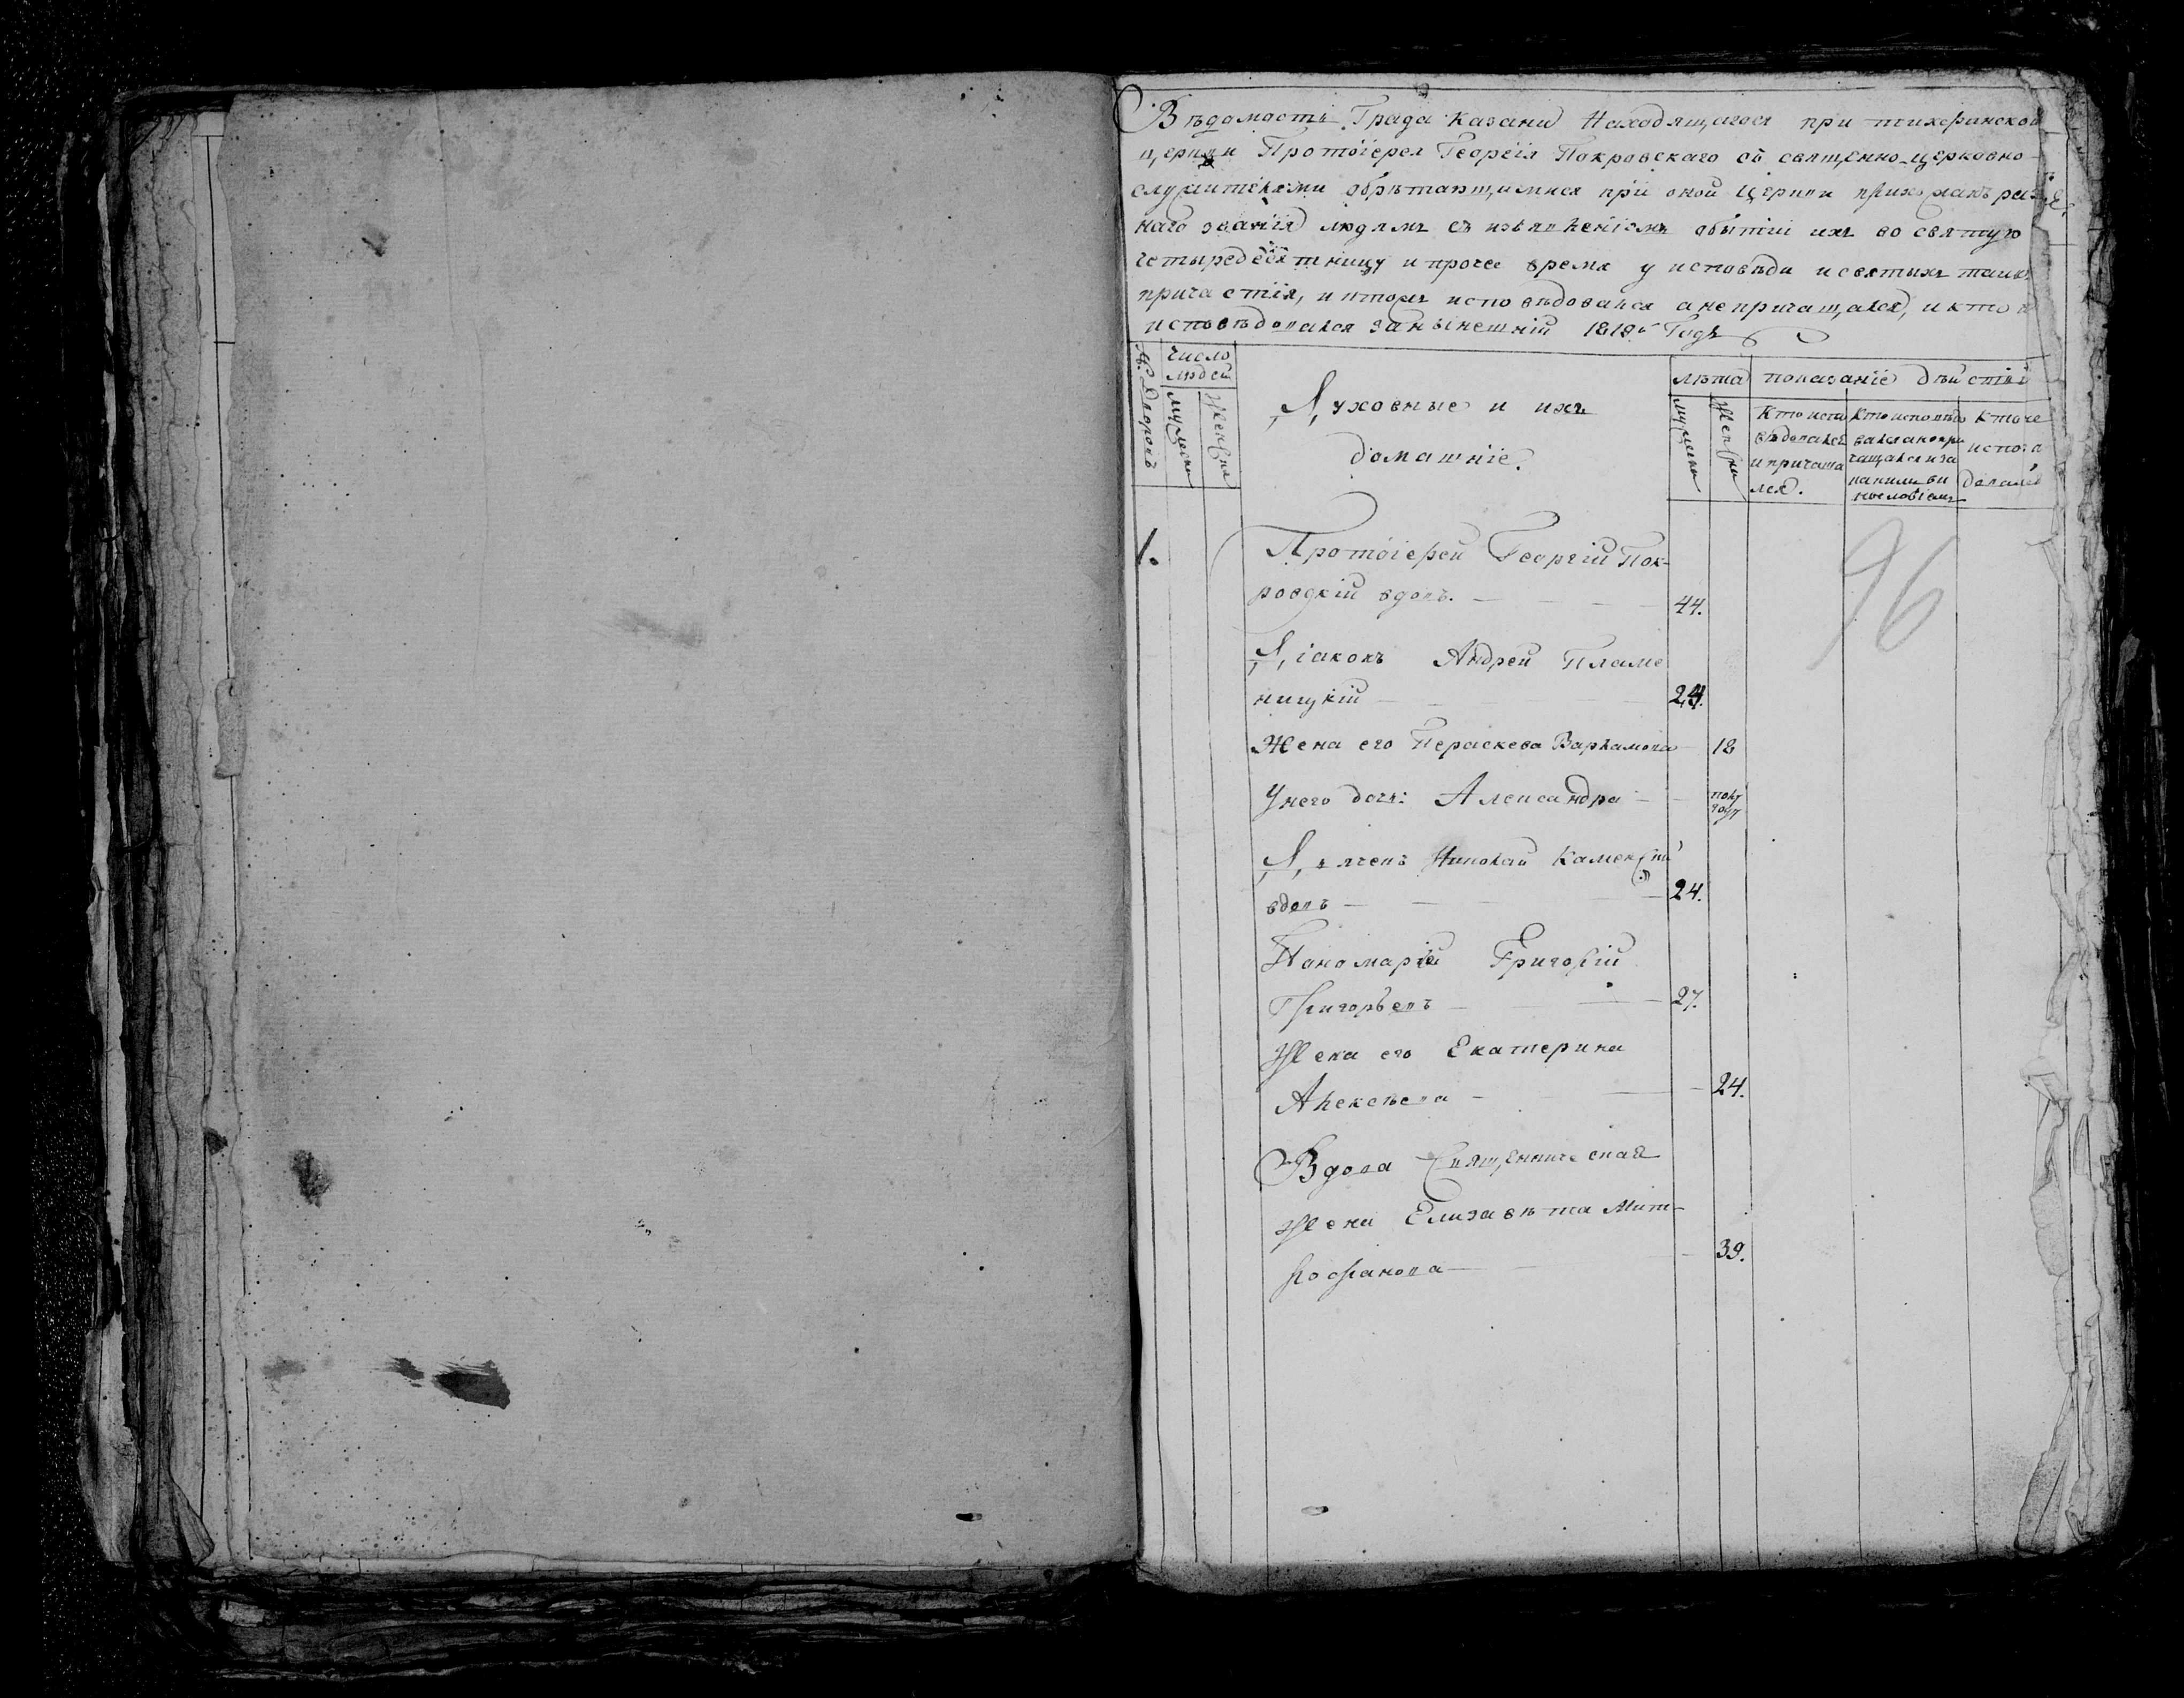 Вѣдомость Града Казани Находящагося при тихфинской
церкви Протоіерея Георгія Покровскаго съ священно-церковно-
служителями обрѣтающимися при оной Церкви прихожанъ раз
наго званія людямъ съ изъявленіемъ обытіи ихъ во святую
четыредесятницу и прочее время у исповѣди и святыхъ таинъ
причастія, и ктомъ исповѣдовался а не причащался, и кто н
исповѣдовался за нынешній 1818й Годъ
№ Дворовъ
число
людей
мужеска
женска
Духовные и ихъ
домашніе.
лѣта
мужеска
женска
показаніе дѣйствій
Кто испо
вѣдовался
и причаща
лся.
Кто исповѣдо
вался а непри
чащался и за
каким ви
нословіемъ
Кто не
испов
довался
1.
96
Протоіерей Георгій Пок-
ровскій вдовъ. 44.
Діаконъ Андрей Пламе
ницкій 24.
Жена его Пераскева Варламова 18
У него дочь: Александра полу году
Дьячекъ Николай Каменскій
вдовъ 24.
Пономарь Григорій
Григорьевъ 27.
Жена его Екатерина
Алексѣева 24.
Вдова Священническая
жена Елизавѣта Мит-
рофанова 39.